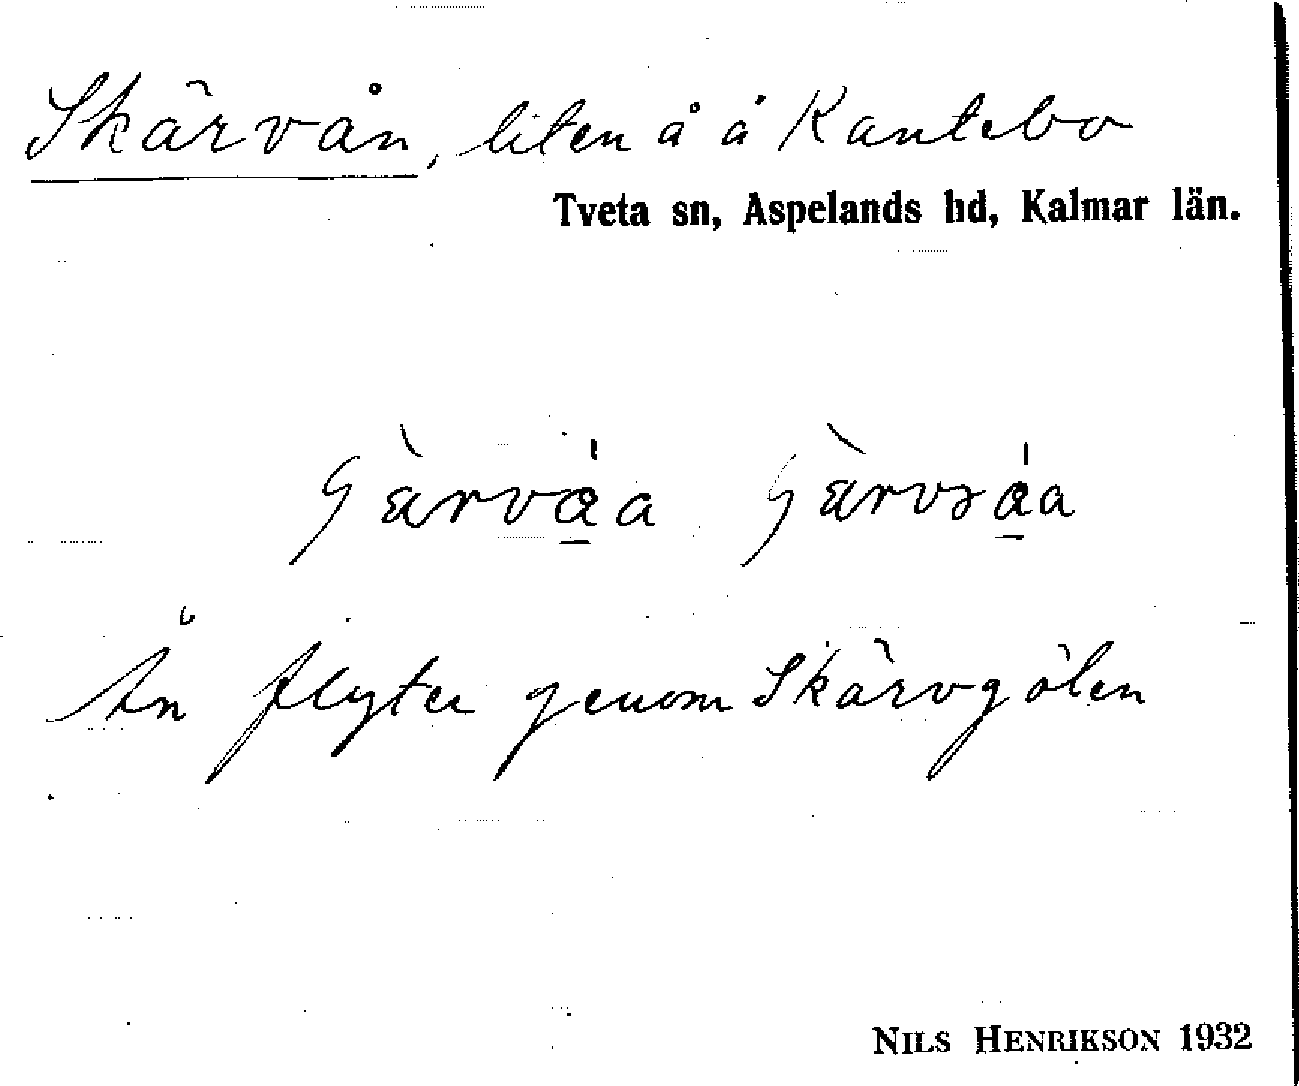 Skärvån, liten å å Kantebo
Tveta sn, Aspelands hd, Kalmar län.
Ån flyter genom Skärvgölen
NILS HENRIKSON 1932